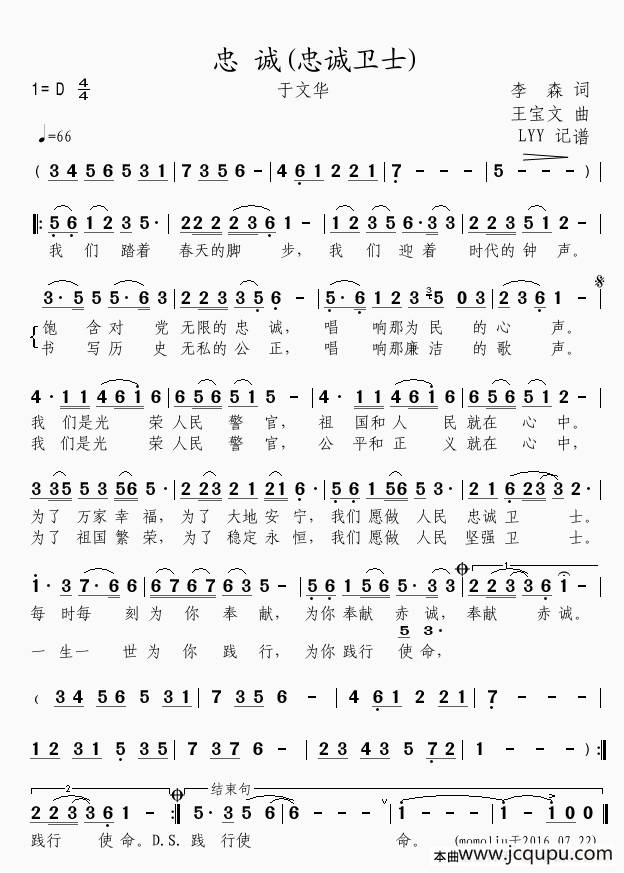 忠 诚(忠诚卫士)
1=D 4/4
于文华
李 森 词
王宝文 曲
LYY 记谱
♩=66
( 3 4 5 6 5 3 1 | 7 3 5 6 - | 4 6 1 2 2 1 | 7 - - - | 5 - - - ) |
‖: 5 6 1 2 3 5 · | 2 2 2 2 3 6 1 - | 1 2 3 5 6 · 3 3 | 2 2 3 5 1 2 - |
我 们 踏着 春天的脚 步, 我 们 迎 着 时代的 钟 声。
3 · 5 5 5 · 6 3 | 2 2 3 3 5 6 - | 5 · 6 1 2 3 3 5 0 3 | 2 3 6 1 - |
饱 含对 党 无限的 忠 诚, 唱 响那为 民 的 心 声。
书 写历 史 无私的 公 正, 唱 响那廉 洁 的 歌 声。
4 · 1 1 4 6 1 6 | 6 5 6 5 1 5 - | 4 · 1 1 4 6 1 6 | 6 5 6 5 1 2 - |
我 们是光 荣 人民 警 官, 祖 国和人 民 就在 心 中。
我 们是光 荣 人民 警 官, 公 平和正 义 就在 心 中,
3 3 5 5 3 5 6 5 · | 2 2 3 2 1 2 1 6 · | 5 6 1 5 6 5 3 · | 2 1 6 2 3 3 2 · |
为了 万家 幸 福, 为了 大地 安 宁, 我们 愿做 人民 忠诚 卫 士。
为了 祖国 繁 荣, 为了 稳定 永 恒, 我们 愿做 人民 坚强 卫 士。
1 · 3 7 · 6 6 | 6 7 6 7 6 3 - | 5 6 1 5 6 5 · 3 3 | 2 2 3 3 6 1 - |
1
每 时每 刻 为 你 奉 献, 为你 奉献 赤 诚, 奉献 赤 诚。
5 3 ·
一 生一 世 为 你 践 行, 为你 践行 使 命,
( 3 4 5 6 5 3 1 | 7 3 5 6 - | 4 6 1 2 2 1 | 7 - - - |
1 2 3 1 5 3 5 | 7 3 7 6 - | 2 3 4 3 5 7 2 | 1 - - ) :‖
2 结束句
2 2 3 3 6 1 - :‖ 5 · 3 5 6 6 - - - | 1 - - - | 1 - 1 0 0 ‖
践行 使 命。D.S. 践 行使 命。 (momoliu于2016.07.22)
本曲www.jcqupu.com